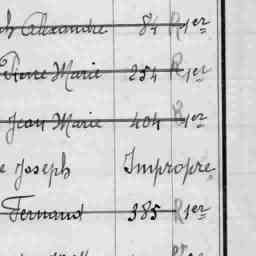 h Alexandre 84 R 1er
Pierre Marie 254 R 1er
Jean Marie 404 R 1er
e Joseph Impropre
Fernand 385 R 1er